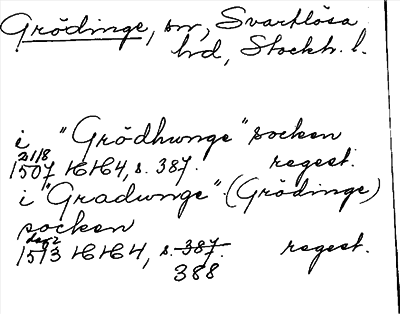 Grödinge, sn, Svartlösa
hd, Stockh. l.
i "Grödhunge" socken
21/8
1507 HH4, s. 387. regest.
i "Gradunge" (Grödinge)
socken
1513 HH4, s. 387. regest.
388